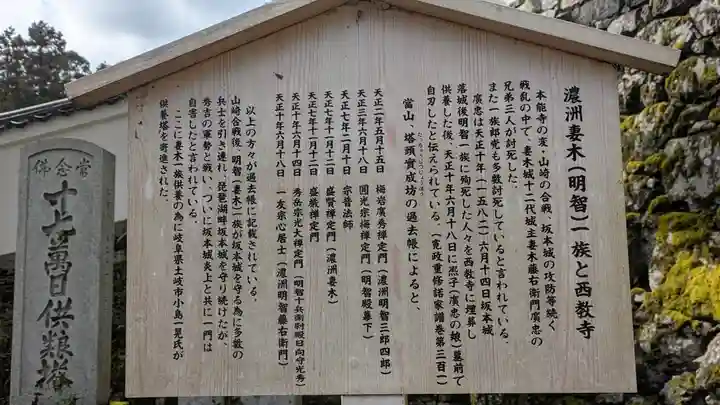 濃洲妻木(明智)一族と西教寺
本能寺の変・山崎の合戦、坂本城の攻防等続く
戦乱の中で、妻木城十二代城主妻木藤右衛門廣忠の
兄弟三人が討死した。
また一族郎党も多数討死していると言われている。
廣忠は天正十年(一五八二)六月十四日坂本城
落城後明智一族に殉死した人々を西教寺に埋葬し
供養した後、天正十年六月十八日に煕子(廣忠の娘)墓前で
自刃したと伝えられている。(寛政重修諸家譜巻第三百一)
當山、塔頭實成坊の過去帳によると、
天正二年五月十五日 梅岩廣秀禅定門(濃洲明智三郎四郎)
天正三年六月十八日 圓光宗梅禅定門(明智殿墓下)
天正七年二月十日 宗晋法師
天正七年十一月十二日 盛賢禅定門(濃洲妻木)
天正七年十一月十二日 盛厳禅定門
天正十年六月十四日 秀岳宗光大禅定門(明智十兵衛尉殿日向守光秀)
天正十年六月十八日 一友宗心居士(濃洲明智藤右衛門)
以上の方々が過去帳に記載されている。
山崎合戦後、明智(妻木)一族が坂本城を守る為に多数の
兵士を引き連れ、琵琶湖畔坂本城を守り続けたが、
秀吉の軍勢と戦い、ついに坂本城炎上と共に一門は
自害したと言われている。
ここに妻木一族供養の為に岐阜県土岐市小島一晃氏が
供養塔を寄進された。
常念佛
十七萬日供粮塔